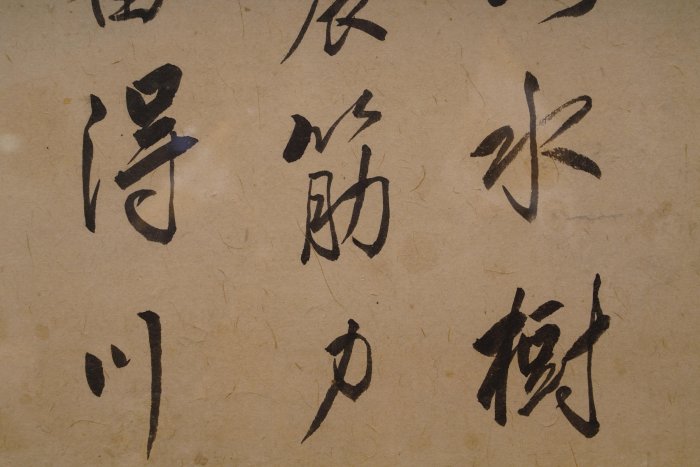 水樹
筋力
得川